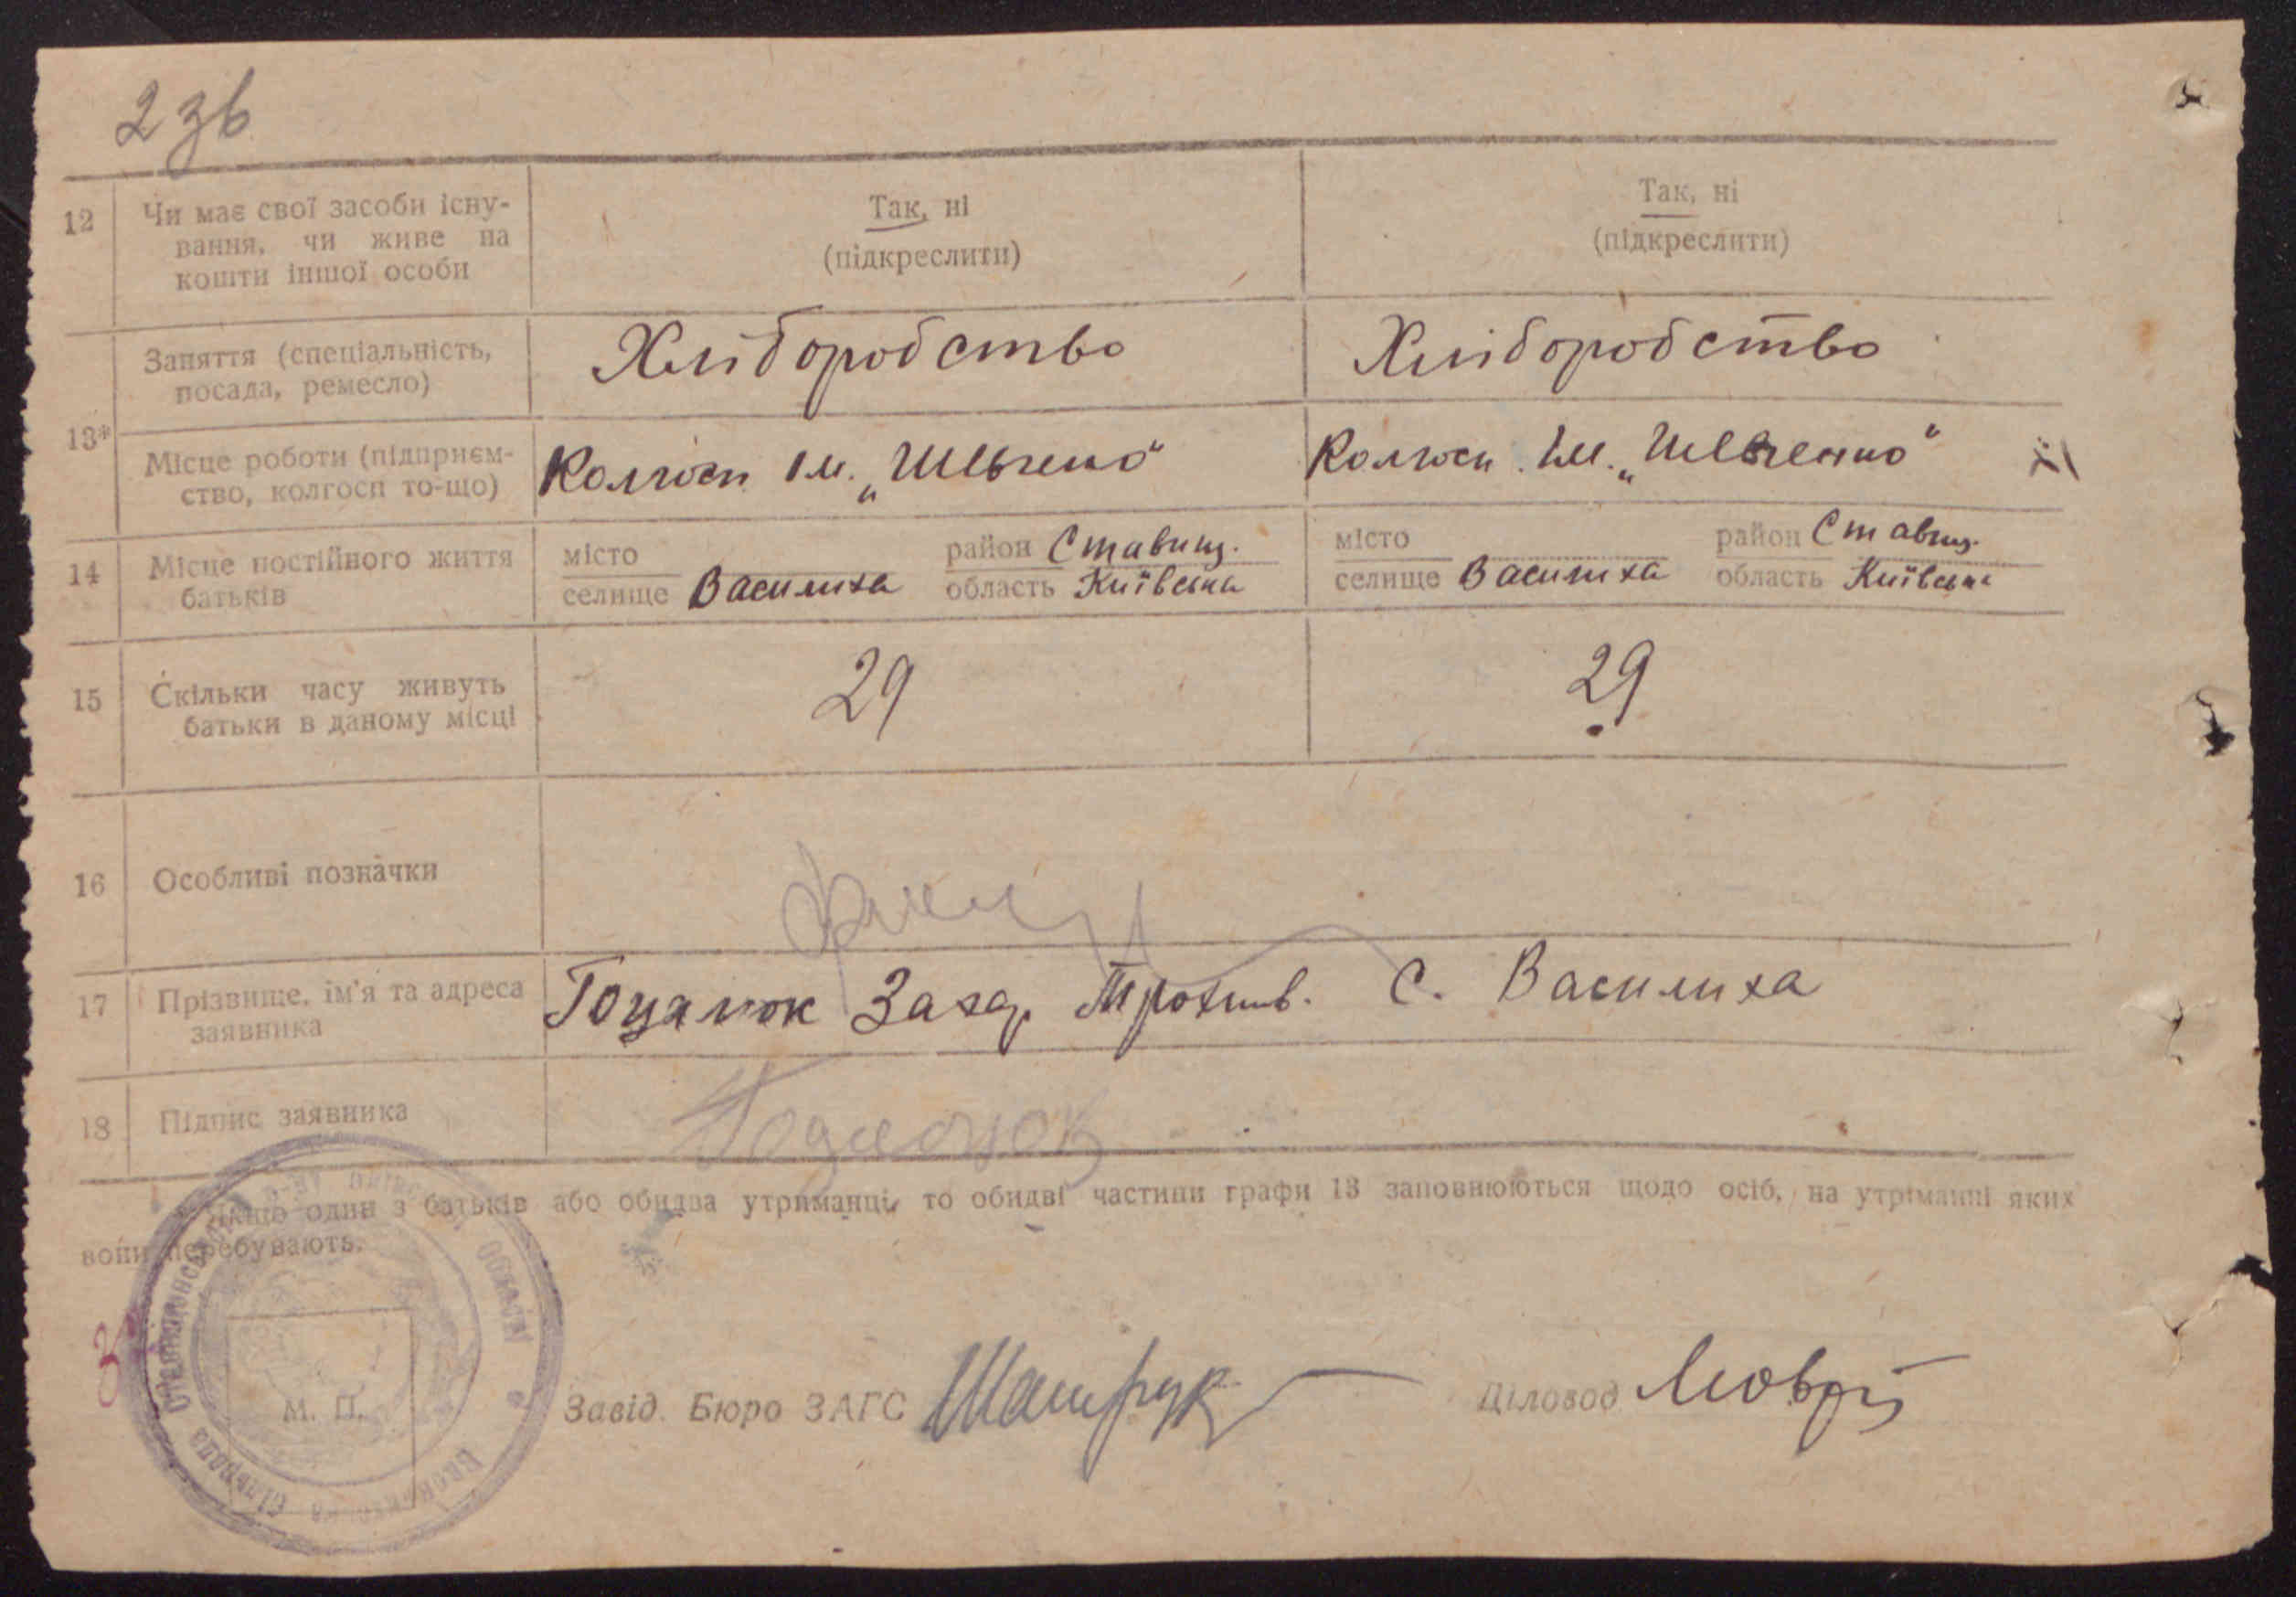 2 зв
12 Чи має свої засоби існу- Так, ні Так, ні
вання, чи живе на (підкреслити) (підкреслити)
кошти іншої особи
13* Заняття (спеціальність, Хліборобство Хліборобство
посада, ремесло)
Місце роботи (підприєм- Колгосп ім. „Шевченко“ Колгосп ім. „Шевченко“
ство, колгосп то-що)
14 Місце постійного життя місто район Ставищ. місто район Ставищ.
батьків селище Василиха область Київська селище Василиха область Київська
15 Скільки часу живуть 29 29
батьки в даному місці
16 Особливі позначки
17 Прізвище, ім'я та адреса Гоцалюк Захар Трохим. С. Василиха
заявника
18 Підпис заявника
Якщо один з батьків або обидва утриманці, то обидві частини графи 13 заповнюються щодо осіб, на утриманні яких
вони перебувають.
М. П. Завід. Бюро ЗАГС Діловод